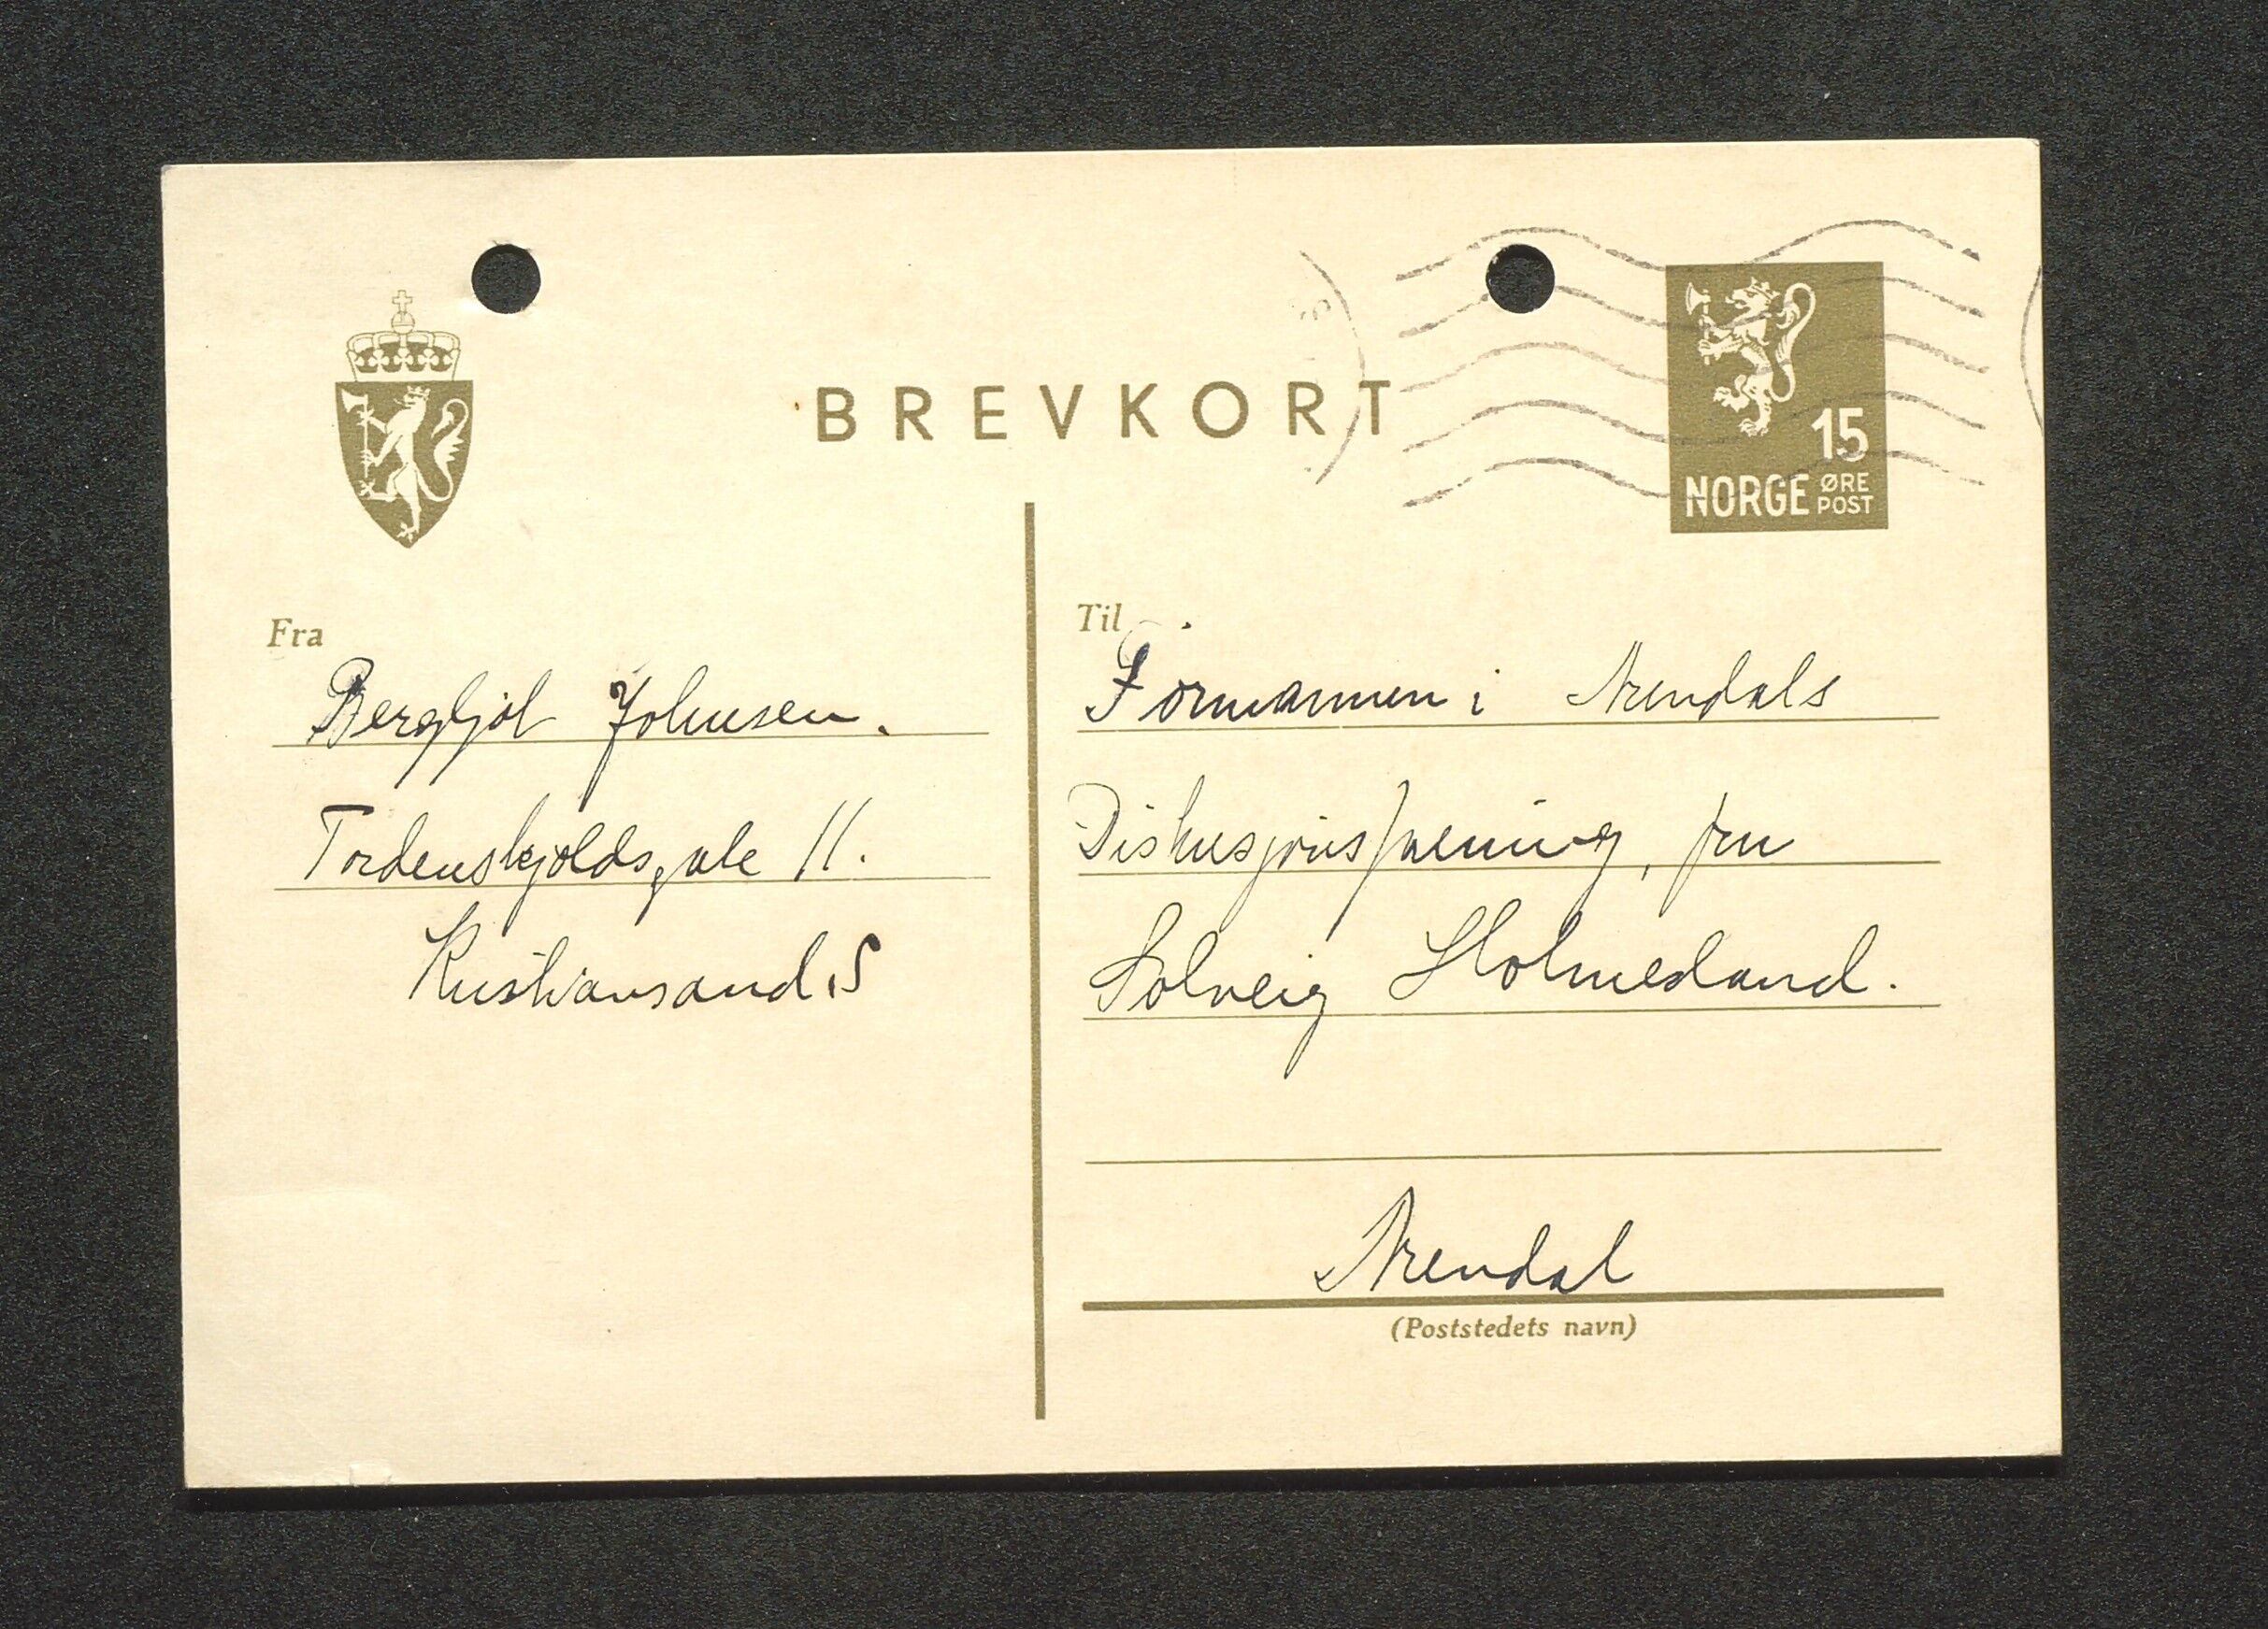 BREVKORT
15
NORGE ØRE POST
Fra
Bergljot Johnsen.
Tordenskjoldsgate 11.
Kristiansand.S
Til
Formannen i Arendals
Diskusjonsforening, fru
Solveig Holmesland.
Arendal
(Poststedets navn)